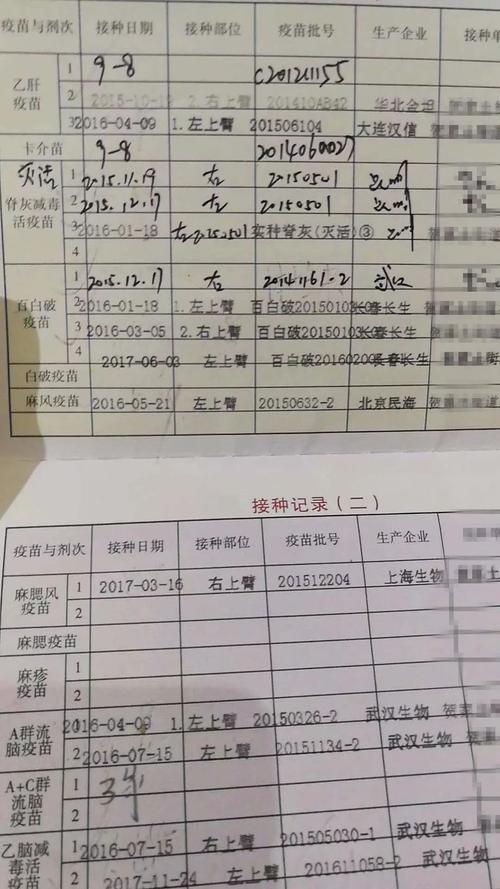 疫苗与剂次 接种日期 接种部位 疫苗批号 生产企业 接种单
乙肝疫苗 1 9-8 C201211155
2 2015-10-19 2.右上臂 201410AB42 华北金坦
3 2016-04-09 1.左上臂 201506104 大连汉信
卡介苗 9-8 201406a027
灭活
脊灰减毒活疫苗 1 2015.11.19 20150501
2 2015.12.17 20150501
3 2016-01-18 20150501 实种脊灰(灭活)③
4
百白破疫苗 1 2015.12.17 20141161-2 武汉
2 2016-01-18 1.左上臂 百白破20150103 长春长生
3 2016-03-05 2.右上臂 百白破20150103 长春长生
4 2017-06-03 左上臂 百白破201602005 长春长生
白破疫苗
麻风疫苗 2016-05-21 左上臂 20150632-2 北京民海
接种记录(二)
疫苗与剂次 接种日期 接种部位 疫苗批号 生产企业
麻腮风疫苗 1 2017-03-16 右上臂 201512204 上海生物
2
麻腮疫苗
麻疹疫苗 1
2
A群流脑疫苗 1 2016-04-09 1.左上臂 20150326-2 武汉生物
2 2016-07-15 左上臂 20151134-2 武汉生物
A+C群流脑疫苗 1
2
乙脑减毒活疫苗 1 2016-07-15 右上臂 201505030-1 武汉生物
2 2017-11-24 左上臂 201611058-2 武汉生物